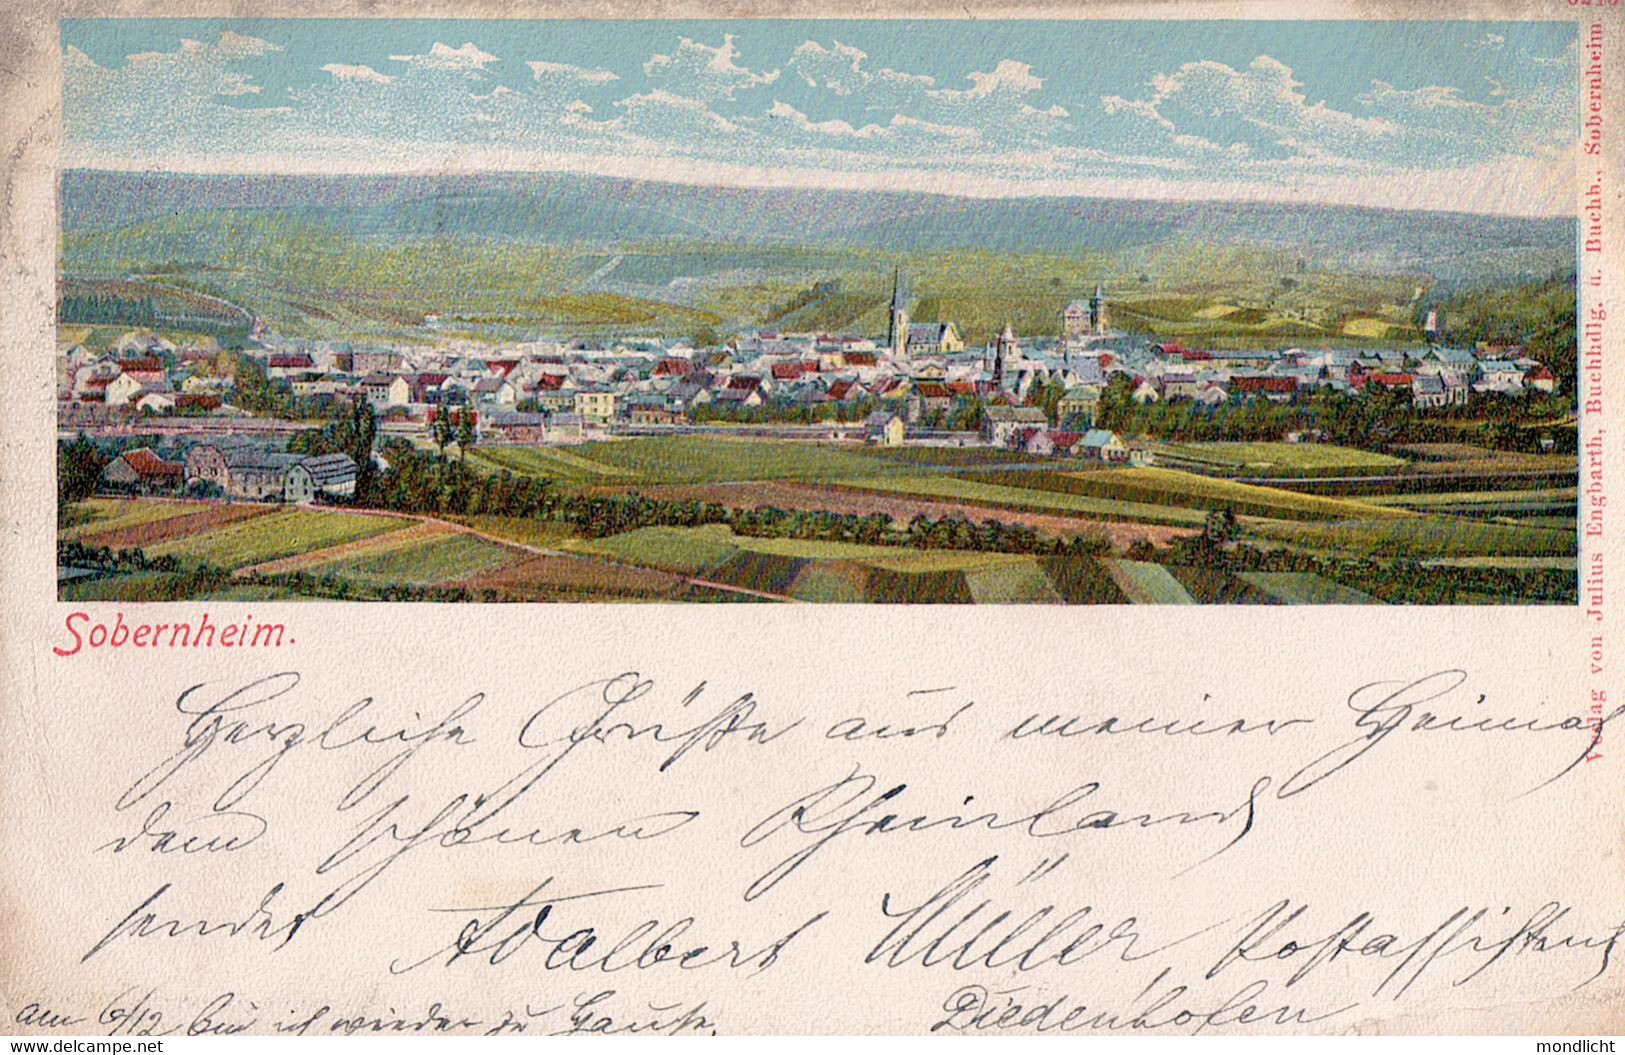 Verlag von Julius Engbarth, Buchhdlg. u. Buchb., Sobernheim
Sobernheim.
Herzliche Grüße aus meiner Heimat
dem schönen Rheinland
sendet Adalbert Müller, Postassistent
Diedenhofen
am 6/12 bin ich wieder zu Hause.
www.delcampe.net
mondlicht